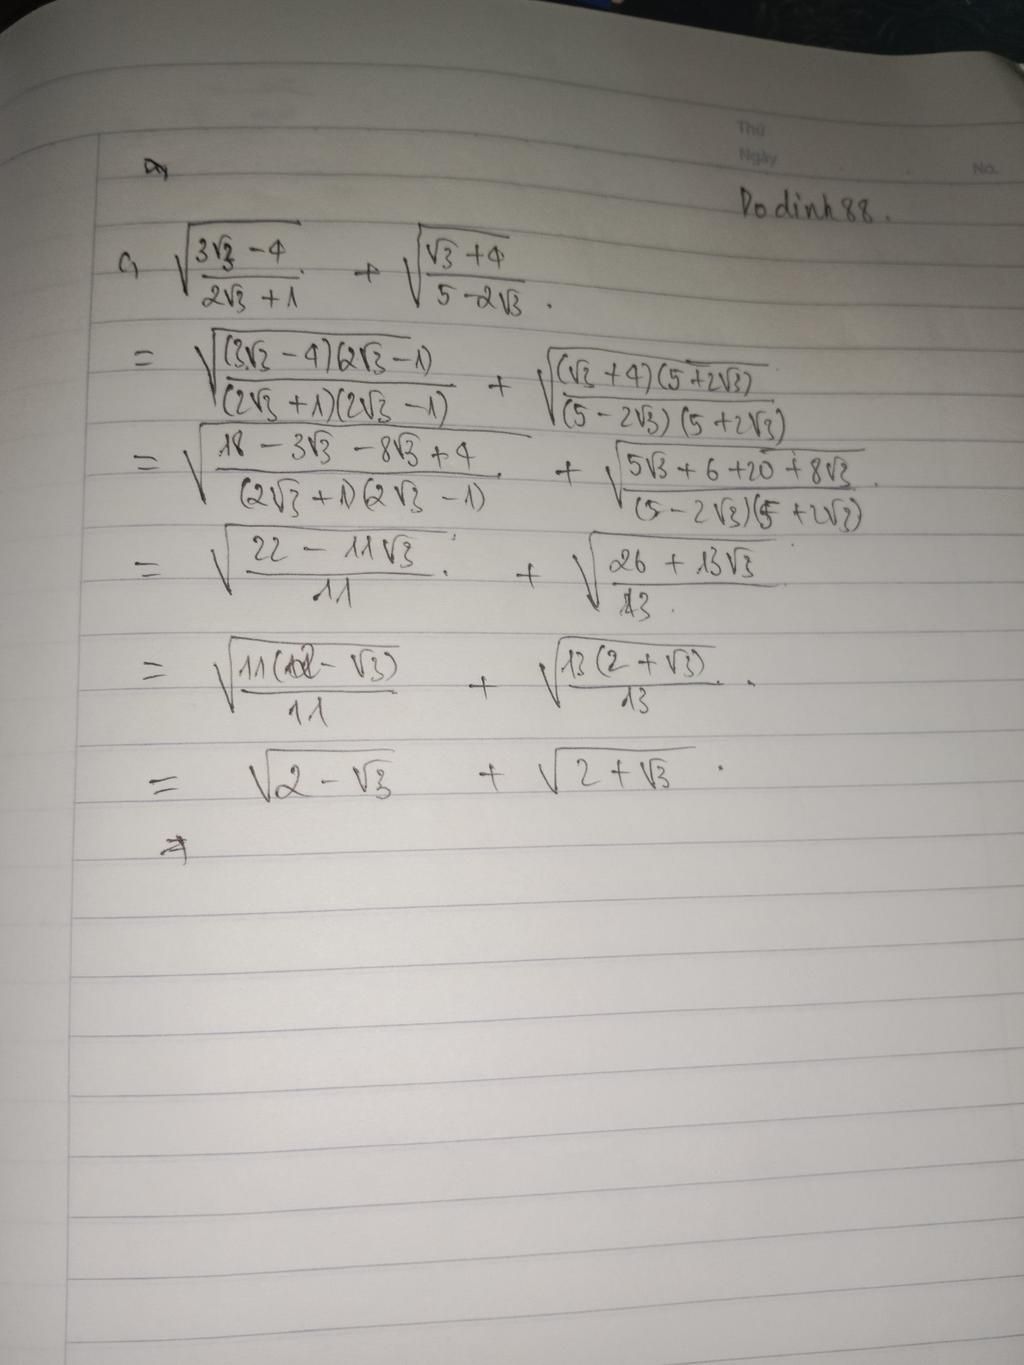 Thứ
Ngày
No.
Dodinh88.
c, √((3√3 - 4)/(2√3 + 1)) + √((√3 + 4)/(5 - 2√3)).
= √((3√3 - 4)(2√3 - 1)/(2√3 + 1)(2√3 - 1)) + √((√3 + 4)(5 + 2√3)/(5 - 2√3)(5 + 2√3))
= √((18 - 3√3 - 8√3 + 4)/(2√3 + 1)(2√3 - 1)) + √((5√3 + 6 + 20 + 8√3)/(5 - 2√3)(5 + 2√3)).
= √((22 - 11√3)/11) + √((26 + 13√3)/13).
= √(11(2 - √3)/11) + √(13(2 + √3)/13).
= √(2 - √3) + √(2 + √3).
=